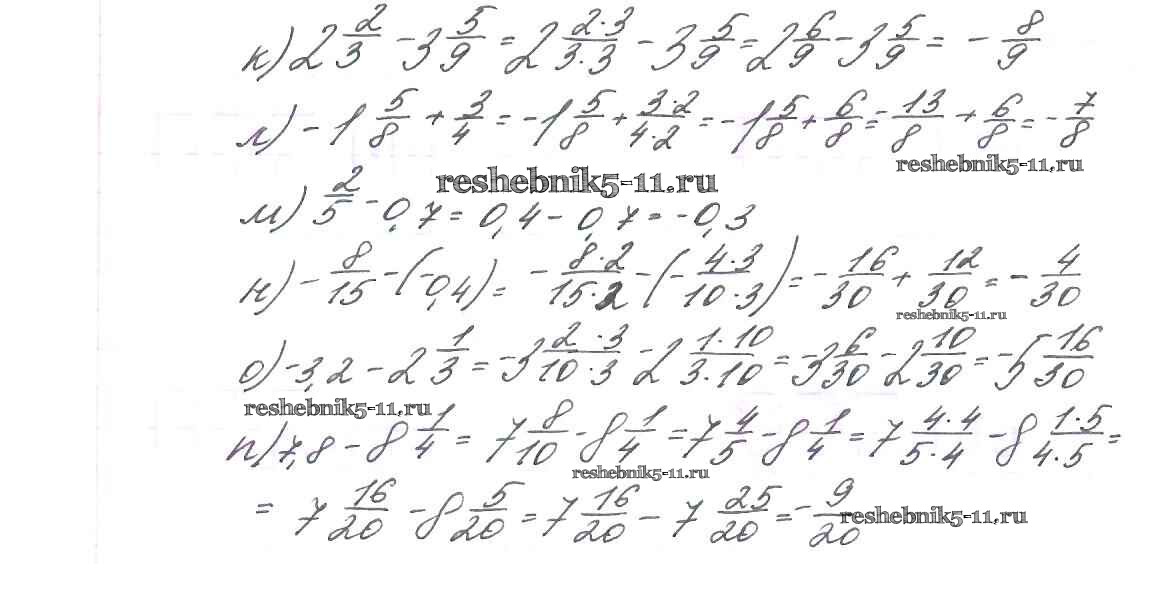 к) 2 2/3 - 3 5/9 = 2 2·3/3·3 - 3 5/9 = 2 6/9 - 3 5/9 = - 8/9
л) - 1 5/8 + 3/4 = - 1 5/8 + 3·2/4·2 = - 1 5/8 + 6/8 = - 13/8 + 6/8 = - 7/8
reshebnik5-11.ru
reshebnik5-11.ru
м) 2/5 - 0,7 = 0,4 - 0,7 = - 0,3
н) - 8/15 - (-0,4) = - 8·2/15·2 - (- 4·3/10·3) = - 16/30 + 12/30 = - 4/30
reshebnik5-11.ru
о) -3,2 - 2 1/3 = -3 2·3/10·3 - 2 1·10/3·10 = -3 6/30 - 2 10/30 = -5 16/30
reshebnik5-11.ru
п) 7,8 - 8 1/4 = 7 8/10 - 8 1/4 = 7 4/5 - 8 1/4 = 7 4·4/5·4 - 8 1·5/4·5 =
reshebnik5-11.ru
= 7 16/20 - 8 5/20 = 7 16/20 - 7 25/20 = - 9/20
reshebnik5-11.ru